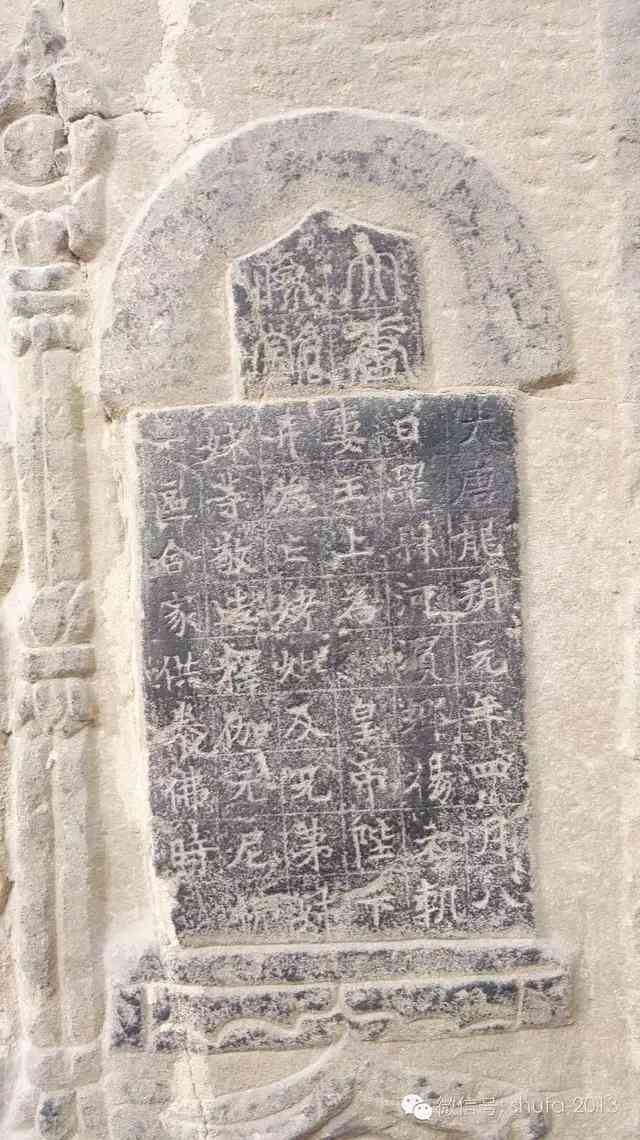 大唐龍朔元年四月八
日鞏縣河濱鄉楊元軌
妻王上為 皇帝陛下
并為亡考妣及兄弟姊
妹等敬造釋伽牟尼佛
一區合家供養佛時
微信号: shufa-2013